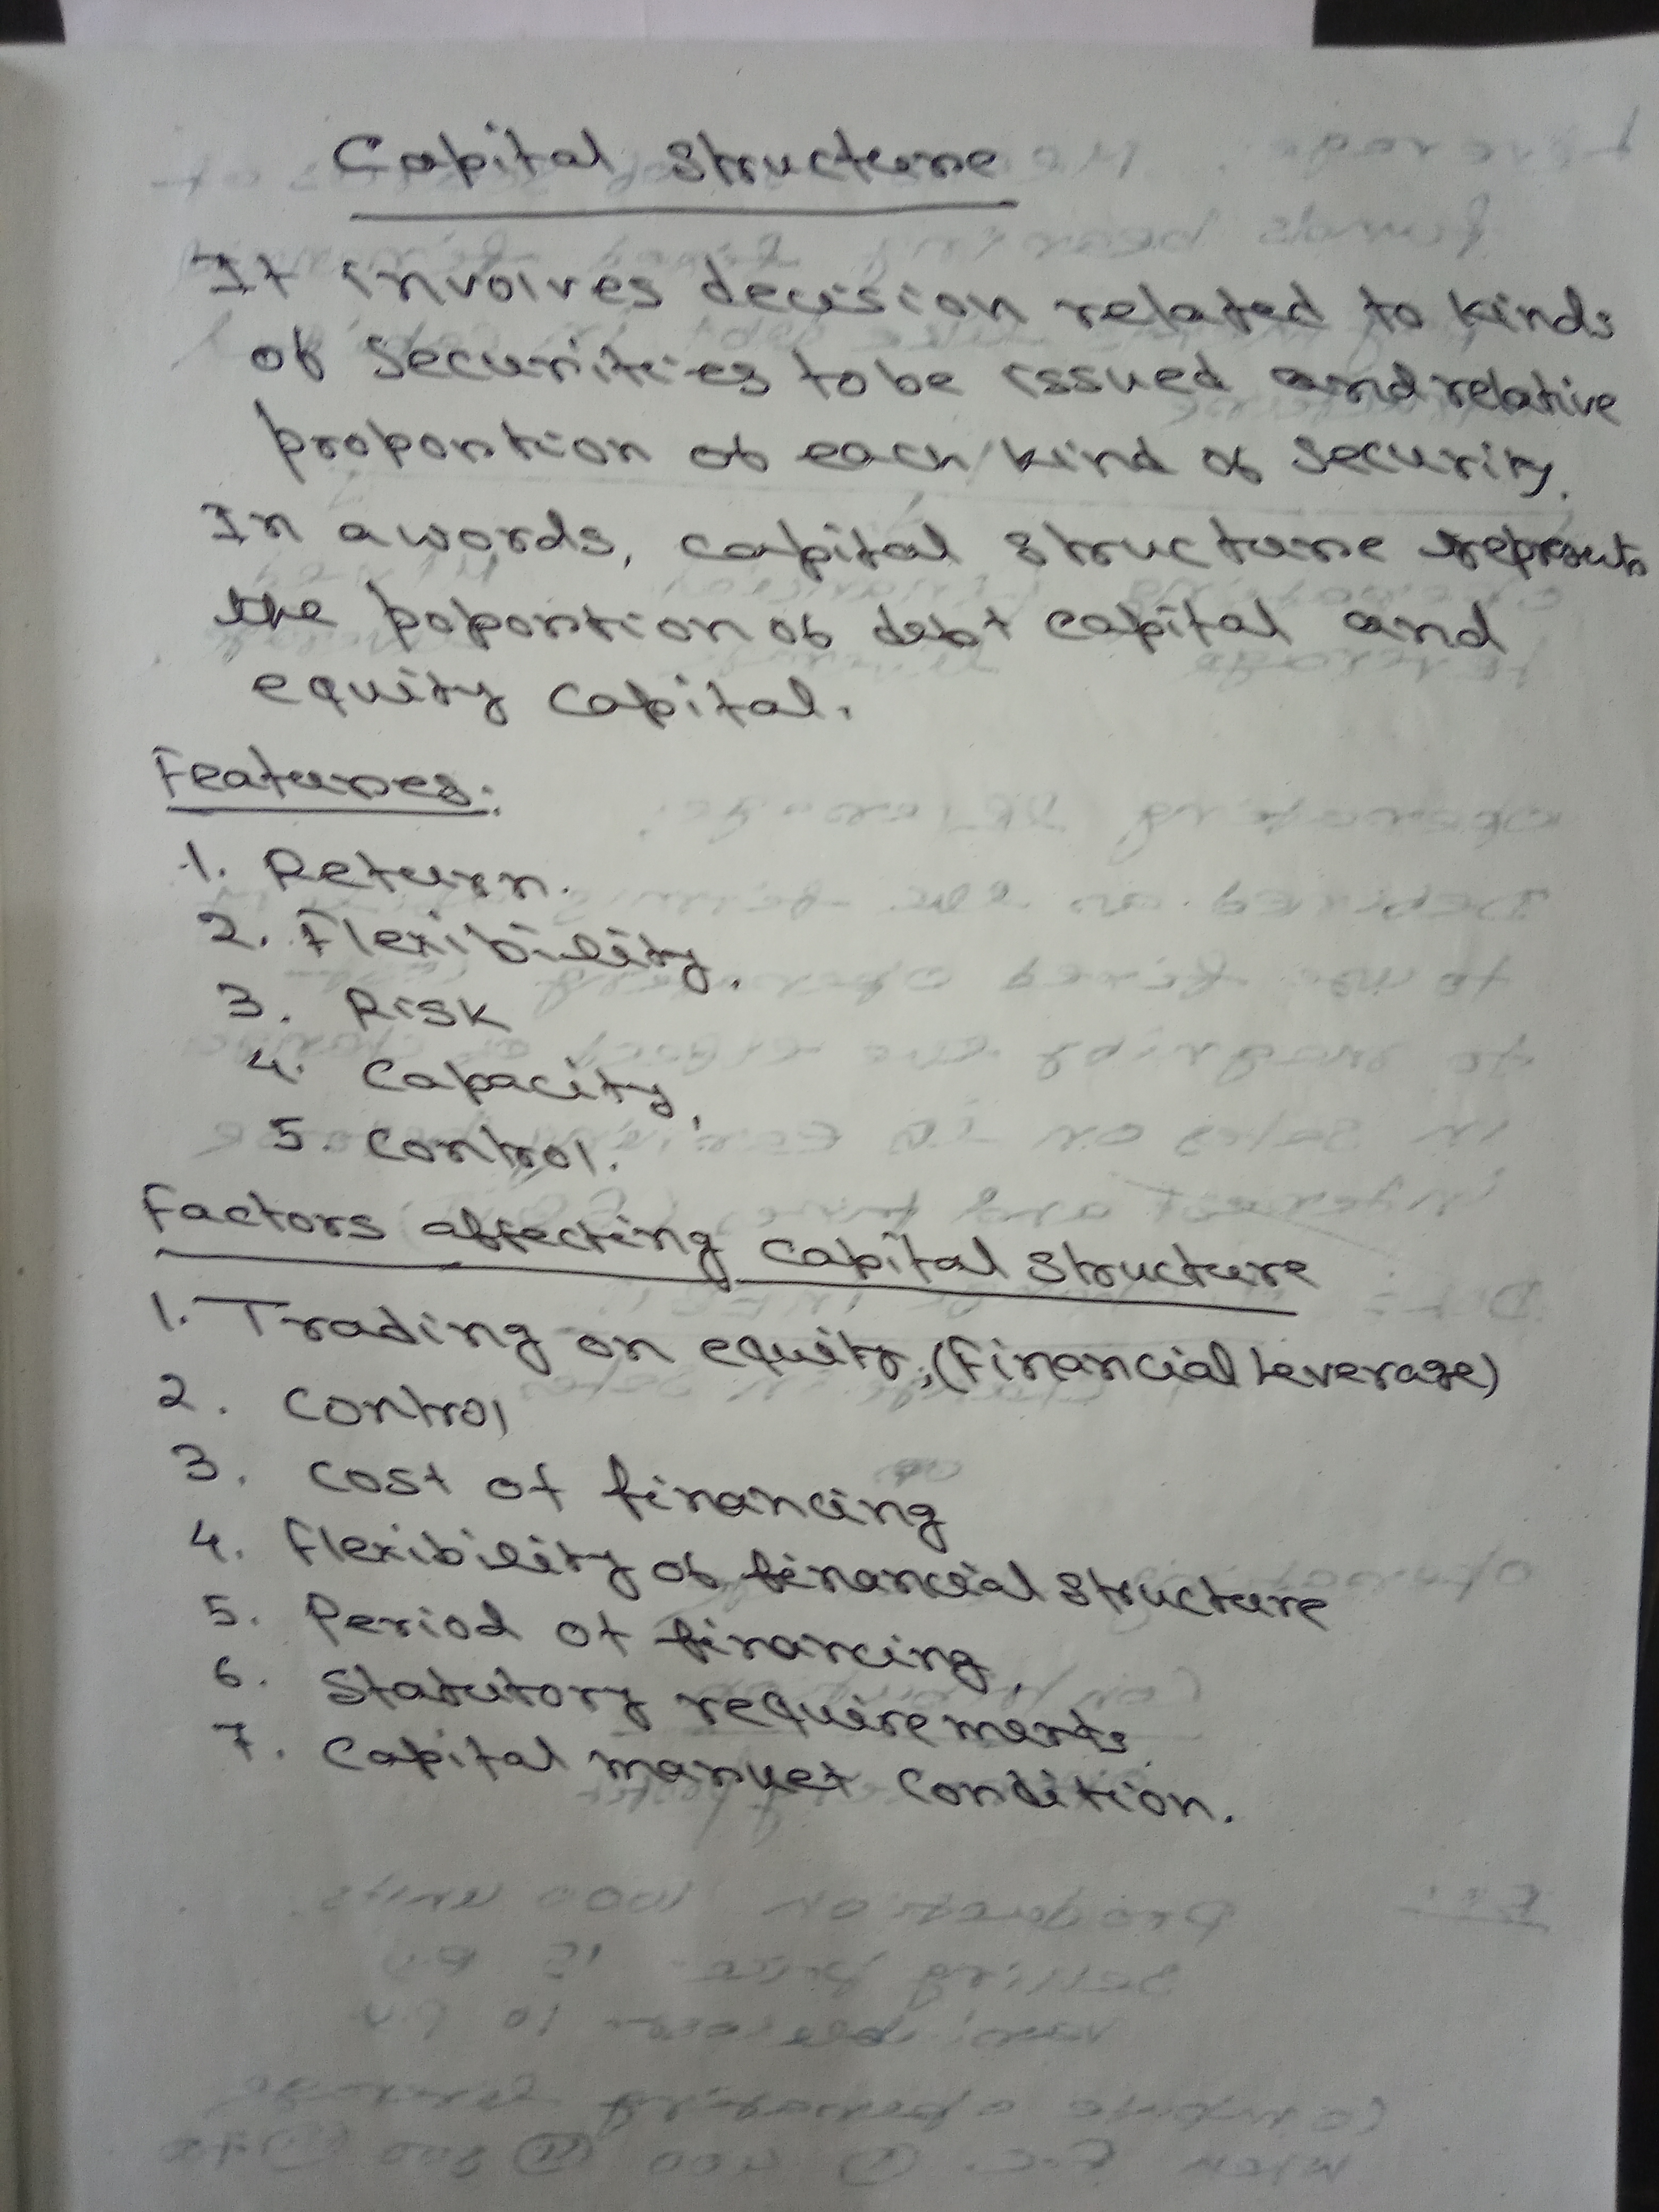 Capital Structure
It involves decision related to kinds
of securities to be issued and relative
proportion of each kind of security.
In a words, capital structure represents
the poportion of debt capital and
equity capital.
Features:
1. Return.
2. Flexibility.
3. Risk
4. Capacity.
5. Control.
Factors affecting capital structure
1. Trading on equity, (Financial Leverage)
2. Control
3. Cost of financing
4. Flexibility of financial structure
5. Period of financing.
6. Statutory requirements.
7. Capital market condition.